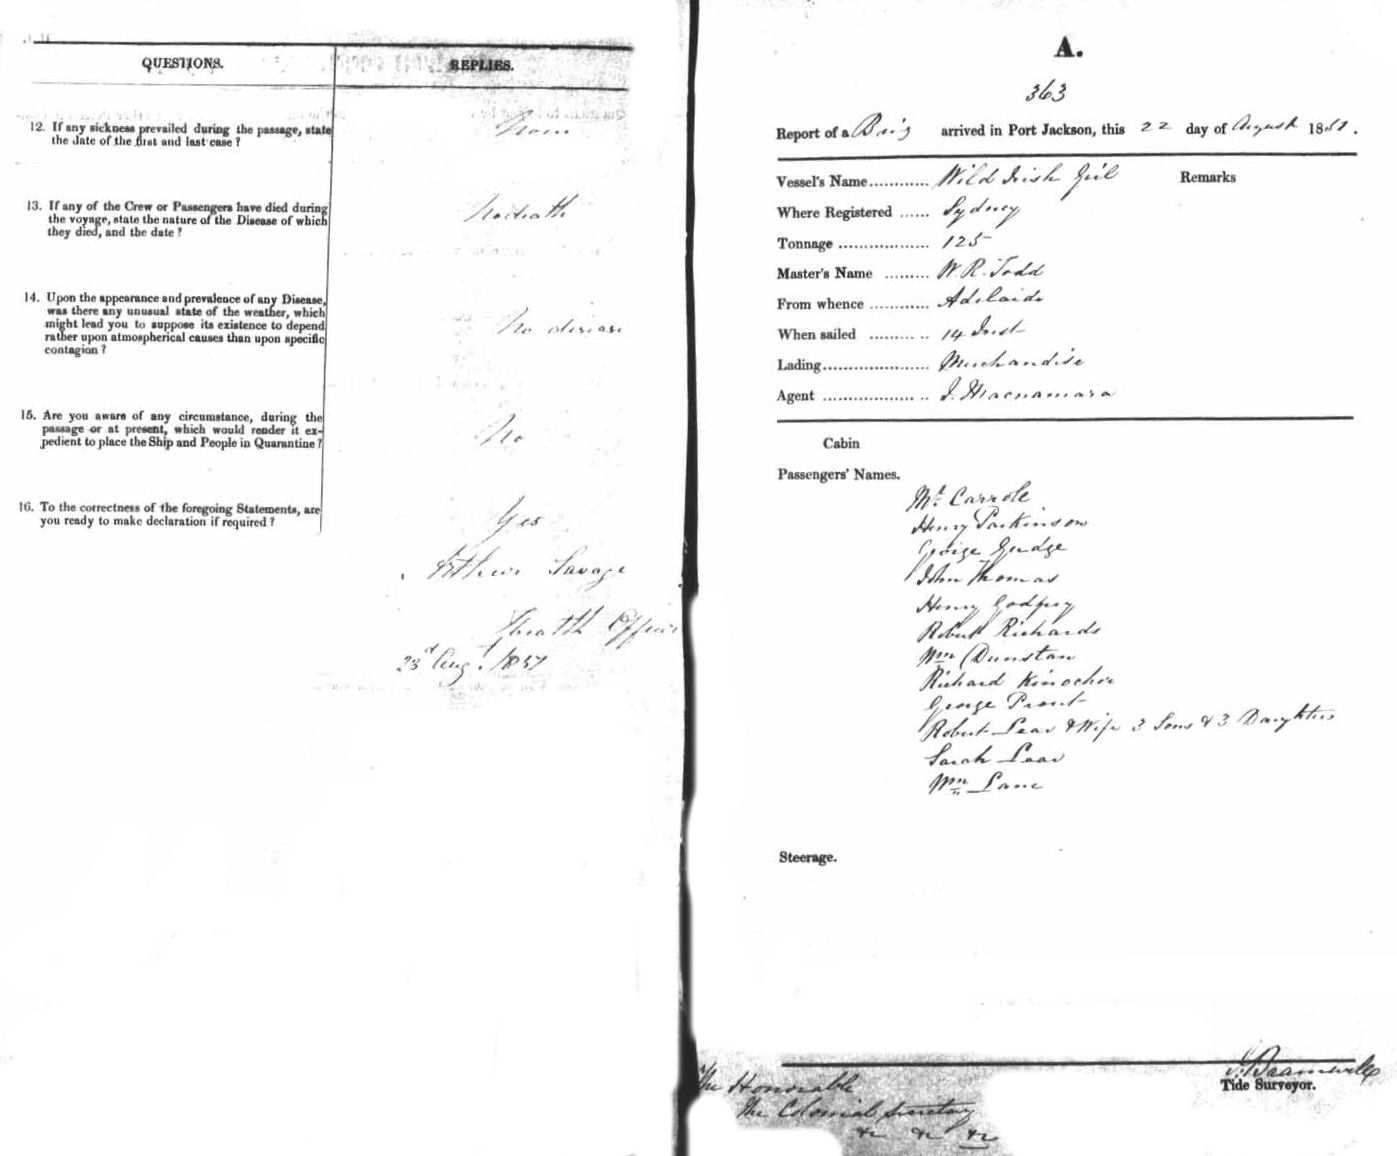 QUESTIONS.
REPLIES.
12. If any sickness prevailed during the passage, state
the date of the first and last case?
None
13. If any of the Crew or Passengers have died during
the voyage, state the nature of the Disease of which
they died, and the date?
No death
14. Upon the appearance and prevalence of any Disease,
was there any unusual state of the weather, which
might lead you to suppose its existence to depend
rather upon atmospherical causes than upon specific
contagion?
No disease
15. Are you aware of any circumstance, during the
passage or at present, which would render it ex-
pedient to place the Ship and People in Quarantine?
No
16. To the correctness of the foregoing Statements, are
you ready to make declaration if required?
Yes
Arthur Savage
Health Officer
23d Augt. 1857
A.
363
Report of a Brig arrived in Port Jackson, this 22 day of August 1857.
Vessel's Name............ Wild Irish Girl
Remarks
Where Registered ...... Sydney
Tonnage .................. 125
Master's Name ......... W. R. Todd
From whence ............ Adelaide
When sailed ......... .. 14 Inst
Lading..................... Merchandise
Agent ................... .. J. Macnamara
Cabin
Passengers' Names.
Mr. Carrole
Henry Parkinson
George Gudge
John Thomas
Henry Godfrey
Robert Richards
Wm Dunstan
Richard
George Prout
Robert Lear & Wife 3 Sons & 3 Daughters
Sarah Lear
Wm Lane
Steerage.
Tide Surveyor.
The Honorable
The Colonial Secretary
&c &c &c